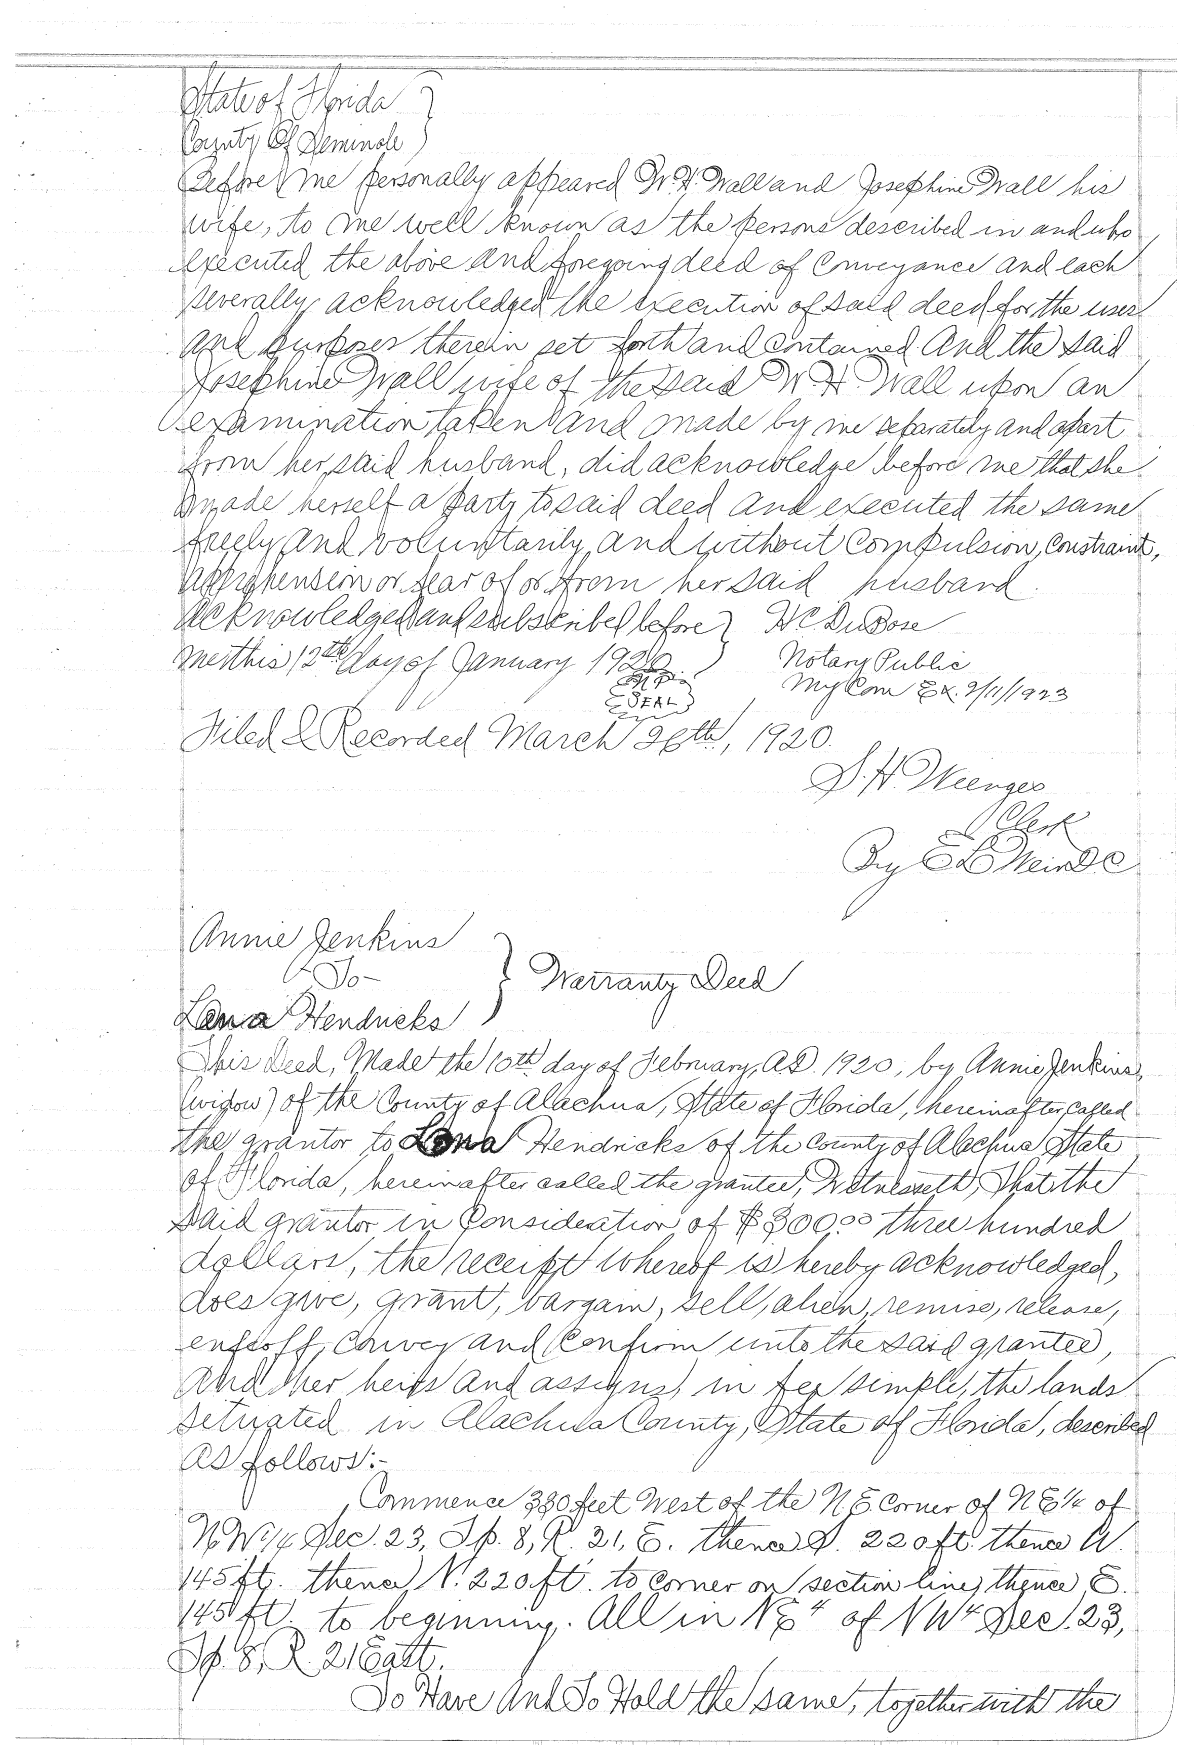 State of Florida }
County Of Seminole }
Before me personally appeared W. H. Wall and Josephine Wall his
wife, to me well known as the persons described in and who
executed the above and foregoing deed of conveyance and each
severally acknowledged the execution of said deed for the uses
and purposes therein set forth and contained And the said
Josephine Wall wife of the said W. H. Wall upon an
examination taken and made by me separately and apart
from her said husband, did acknowledge before me that she
made herself a party to said deed and executed the same
freely and voluntarily and without compulsion, constraint,
apprehension or fear of or from her said husband.
Acknowledged and subscribed before } H C. DuBose
me this 12th day of January 1920. Notary Public
N P
SEAL
My Com Ex. 2/11/1923
Filed & Recorded March 26th, 1920.
S. H. Wienges
Clerk
By E L D C
Annie Jenkins
-To-
} Warranty Deed
Lena Hendricks
This Deed, Made the 10th day of February, A.D. 1920, by Annie Jenkins,
(widow) of the County of Alachua, State of Florida, hereinafter called
the grantor to Lena Hendricks of the County of Alachua State
of Florida, hereinafter called the grantee, Witnesseth, That the
said grantor in Consideration of $300.00 three hundred
dollars, the receipt whereof is hereby acknowledged,
does give, grant, bargain, sell, alien, remise, release,
enfeoff, convey and Confirm unto the said grantee,
And her heirs and assigns, in fee simple, the lands
situated in Alachua County, State of Florida, described
as follows:-
Commence 330 feet West of the N.E. Corner of NE 1/4 of
N.W. 1/4 Sec. 23, Tp. 8, R. 21, E. thence S. 220 ft. thence W.
145 ft. thence N. 220 ft. to corner on section line, thence E.
145 ft. to beginning. All in NE4 of NW4 Sec. 23,
Tp. 8, R. 21 East.
To Have And To Hold the same, together with the